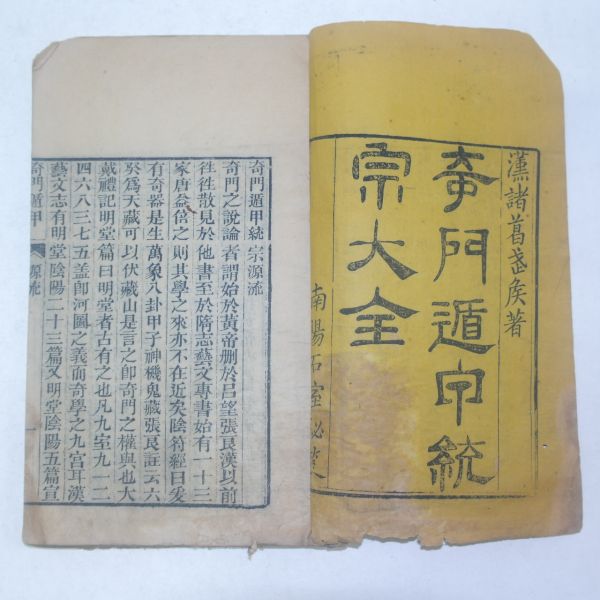 漢諸葛武矦著
奇門遁甲統
宗大全
南陽石室秘藏
奇門遁甲統宗源流
奇門之說論者謂始於黃帝删於呂望張良漢以前
徃徃散見於他書至於隋志藝文專書始有一十三
家唐益倍之則其學之來亦不在近矣陰符經曰爰
有奇器是生萬象八卦甲子神機鬼藏張良註云六
癸爲天藏可以伏藏山是言之卽奇門之權輿也大
戴禮記明堂篇曰明堂者古有之也凡九室九一二
四六八三七五葢卽河圖之義而奇學之九宫耳漢
藝文志有明堂陰陽二十三篇又明堂陰陽五篇宣
奇門遁甲
源流
一